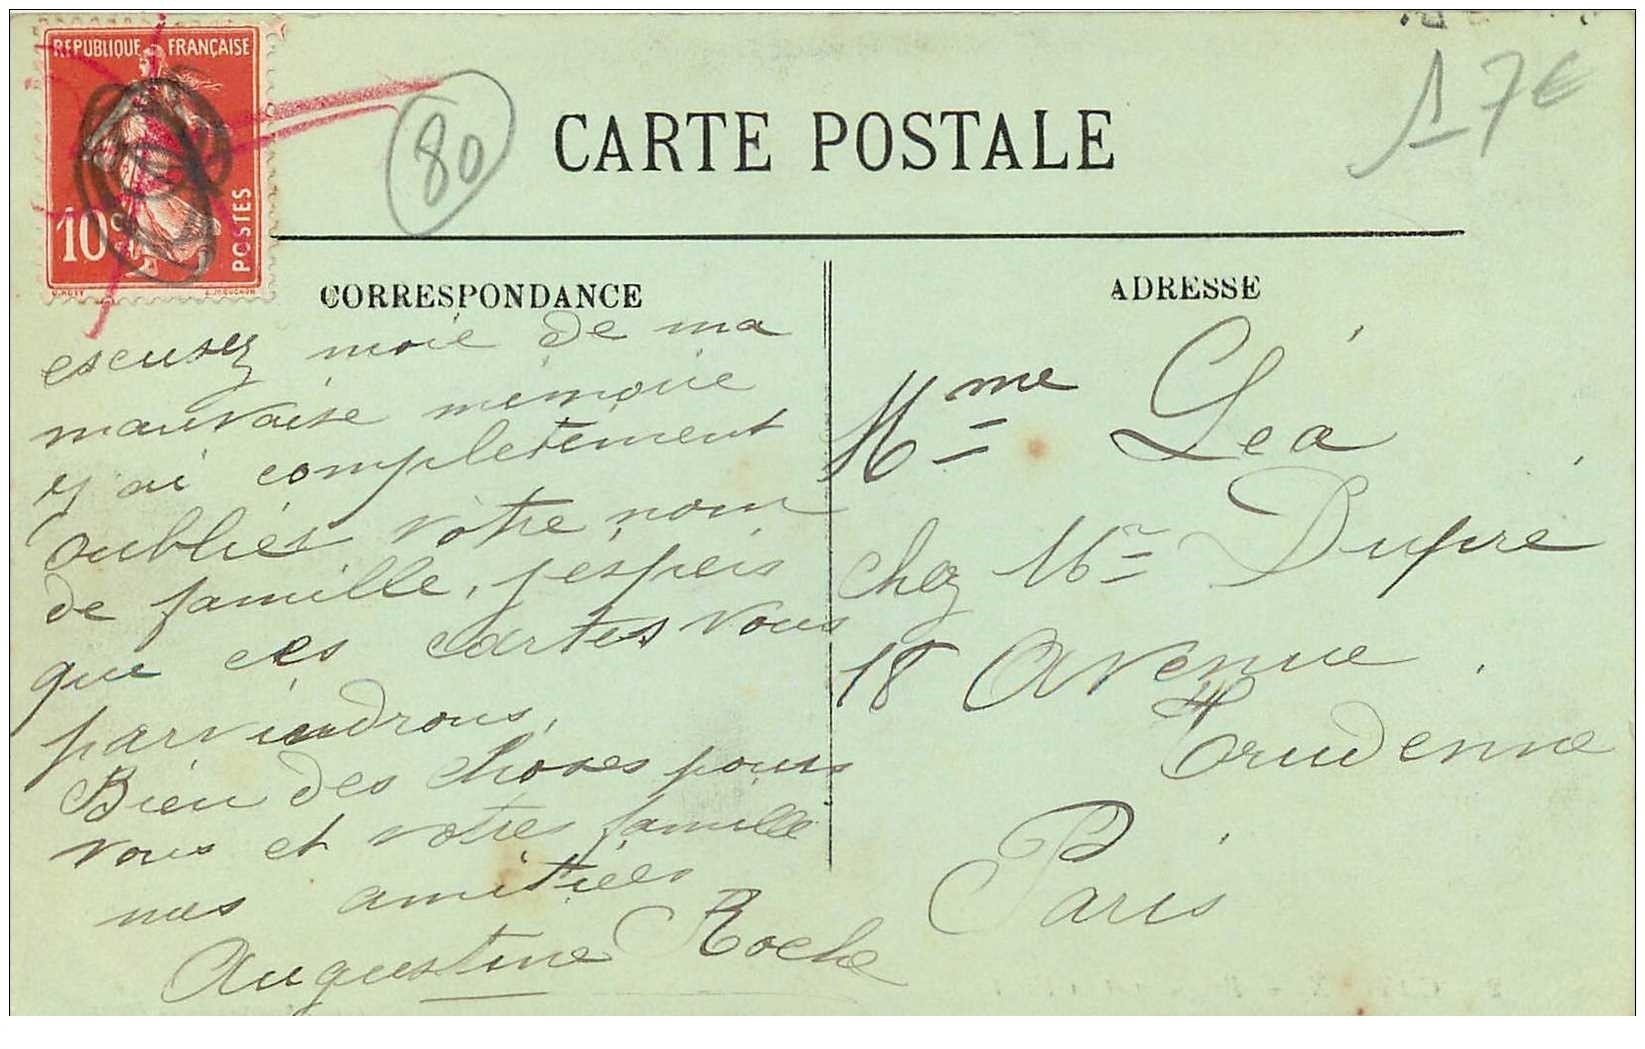 REPUBLIQUE FRANÇAISE
10c
POSTES
80
CARTE POSTALE
17€
CORRESPONDANCE
escusez moie de ma
mauvaise memoiie
y ai completement
oublier votre nom
de famille, j'espeis
que ces cartes vous
parviendrons,
Bien des choses pours
vous et votres famille
mes amitiées
Augustine Roche
ADRESSE
Mme Léa
chez Mr Dupré
18 Avenue
Trudenne
Paris